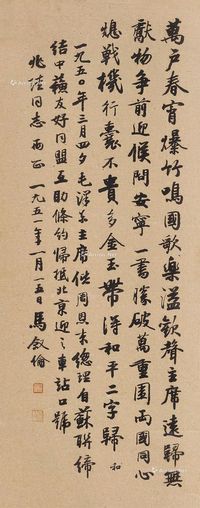 萬户春宵爆竹鳴國歌樂溢歡聲主席遠歸無
獻物爭前迎候問安寧一書勝破萬重圍兩國同心
熄戰機行囊不貴多金玉帶得和平二字歸 和
一九五〇年三月四夕毛澤东主席偕周恩来總理自蘇聯締
結中蘇友好同盟互助條约歸抵北京迎之車站口號
兆陸同志两正 一九五一年一月一五日馬叙倫